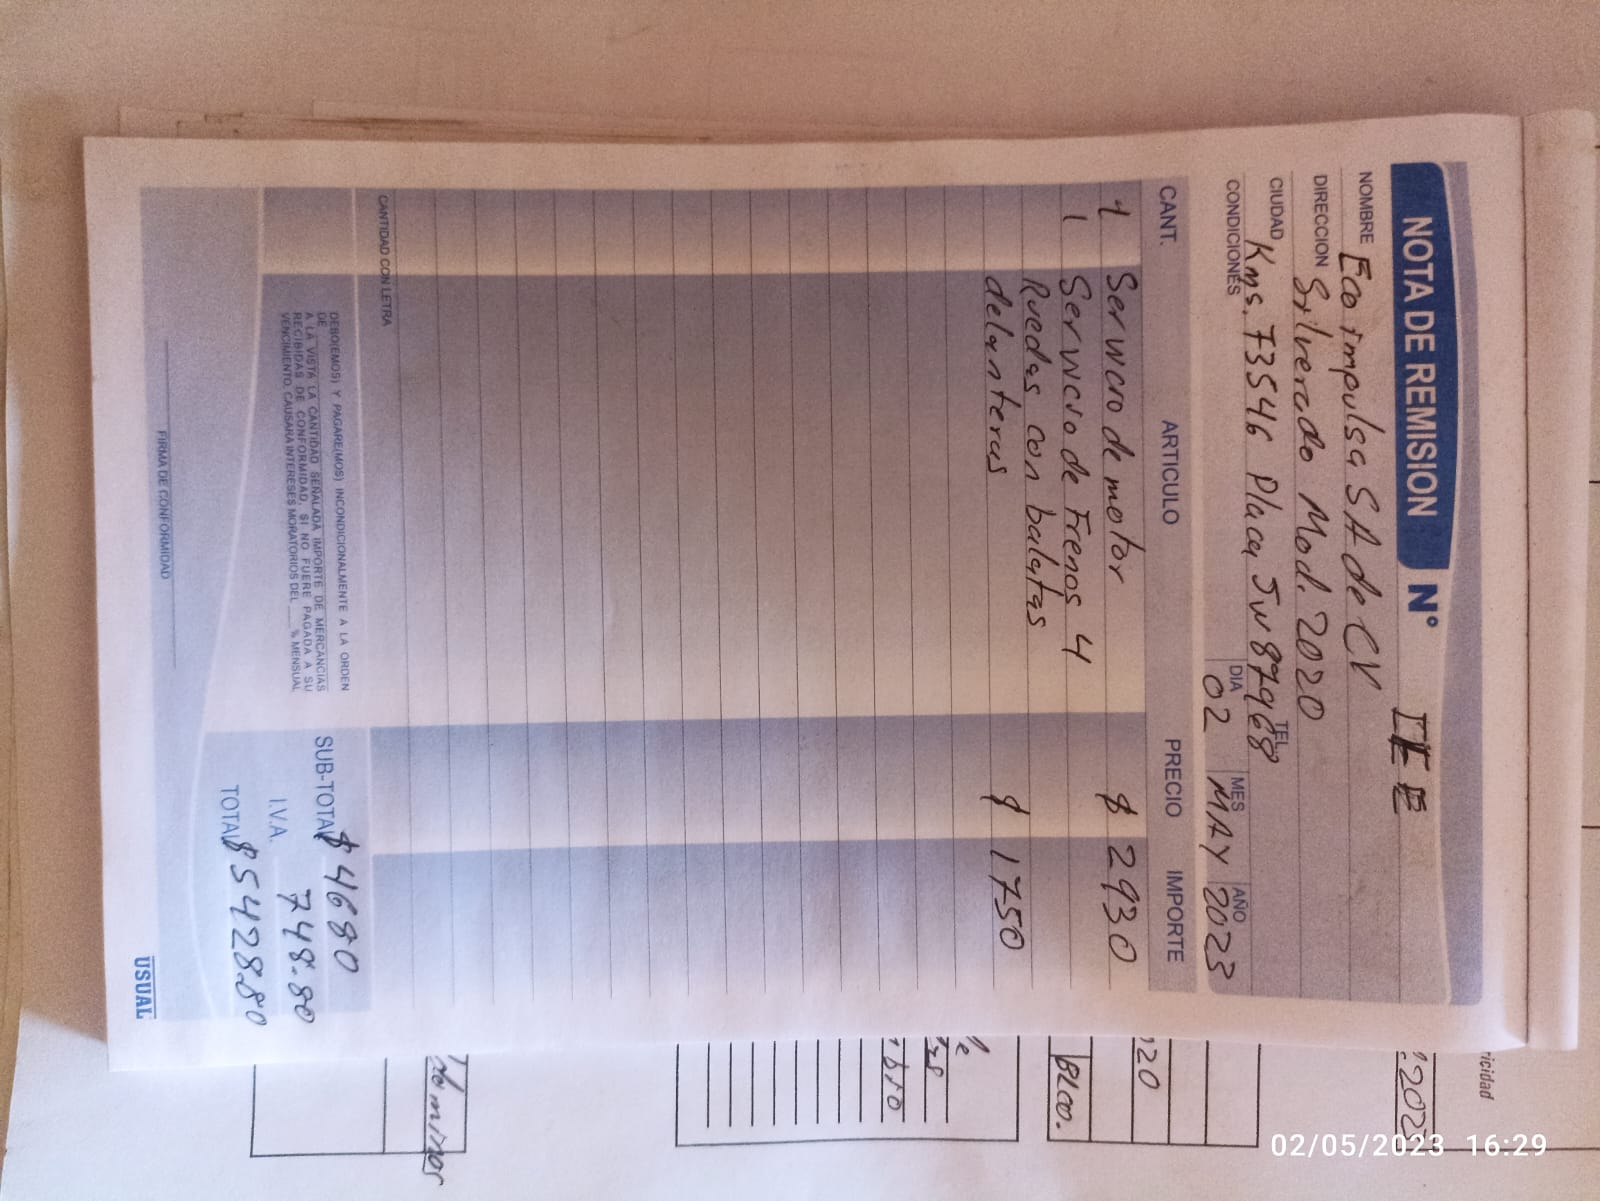 NOTA DE REMISION N° IEE
NOMBRE Eco impulsa SA de CV
DIRECCION Silverado Mod. 2020
CIUDAD Kms. 73546 Placa JV87968 TEL.
CONDICIONES DIA 02 MES MAY AÑO 2023
CANT. ARTICULO PRECIO IMPORTE
1 Servicio de motor $ 2930
1 Servicio de Frenos 4
Ruedas con balatas
delanteras $ 1750
CANTIDAD CON LETRA
DEBO(EMOS) Y PAGARE(MOS) INCONDICIONALMENTE A LA ORDEN
DE
A LA VISTA LA CANTIDAD SEÑALADA IMPORTE DE MERCANCIAS
RECIBIDAS DE CONFORMIDAD, SI NO FUERE PAGADA A SU
VENCIMIENTO, CAUSARA INTERESES MORATORIOS DEL ___% MENSUAL
SUB-TOTAL $ 4680
I.V.A. 748.80
TOTAL $ 542880
FIRMA DE CONFORMIDAD
USUAL
ricidad
202
020
BLCO.
de minos
02/05/2023 16:29